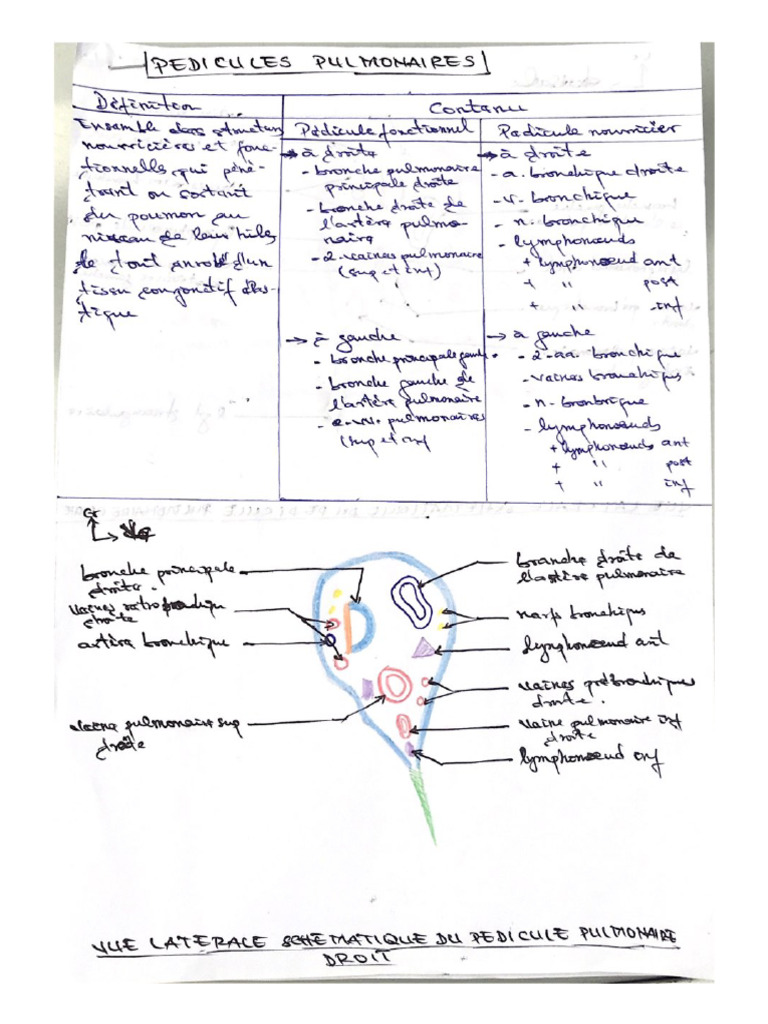 PEDICULES PULMONAIRES
Définition
Contenu
Ensemble des structures
nourricières et fonc-
tionnelles qui péné-
trant ou sortant
du poumon au
niveau de leur hiles
le tout enrobé d'un
tissu conjonctif élas-
tique
Pédicule fonctionnel
→ à droite
- bronche pulmonaire
principale droite
- branche droite de
l'artère pulmo-
naire
- 2 veines pulmonaire
(sup et inf)
→ à gauche
- bronche principale gauche
- branche gauche de
l'artère pulmonaire
- 2 vv. pulmonaires
(sup et inf
Pédicule nourricier
→ à droite
- a. bronchique droite
- v. bronchique
- n. bronchique
- lymphonœuds
+ lymphonœud ant
+ '' post
+ '' inf
→ à gauche
- 2 aa. bronchique
- veines bronchiques
- n. bronbrique
- lymphonœuds
+ lymphonœuds ant
+ '' post
+ '' inf
bronche principale
droite.
veines rétro
droite
artère bronchique
veine pulmonaire sup
droite
branche droite de
l'artère pulmonaire
nerfs bronchiques
lymphonœud ant
veines prébronchiques
droite.
veine pulmonaire inf
droite
lymphonœud inf
VUE LATERALE SCHEMATIQUE DU PEDICULE PULMONAIRE
DROIT